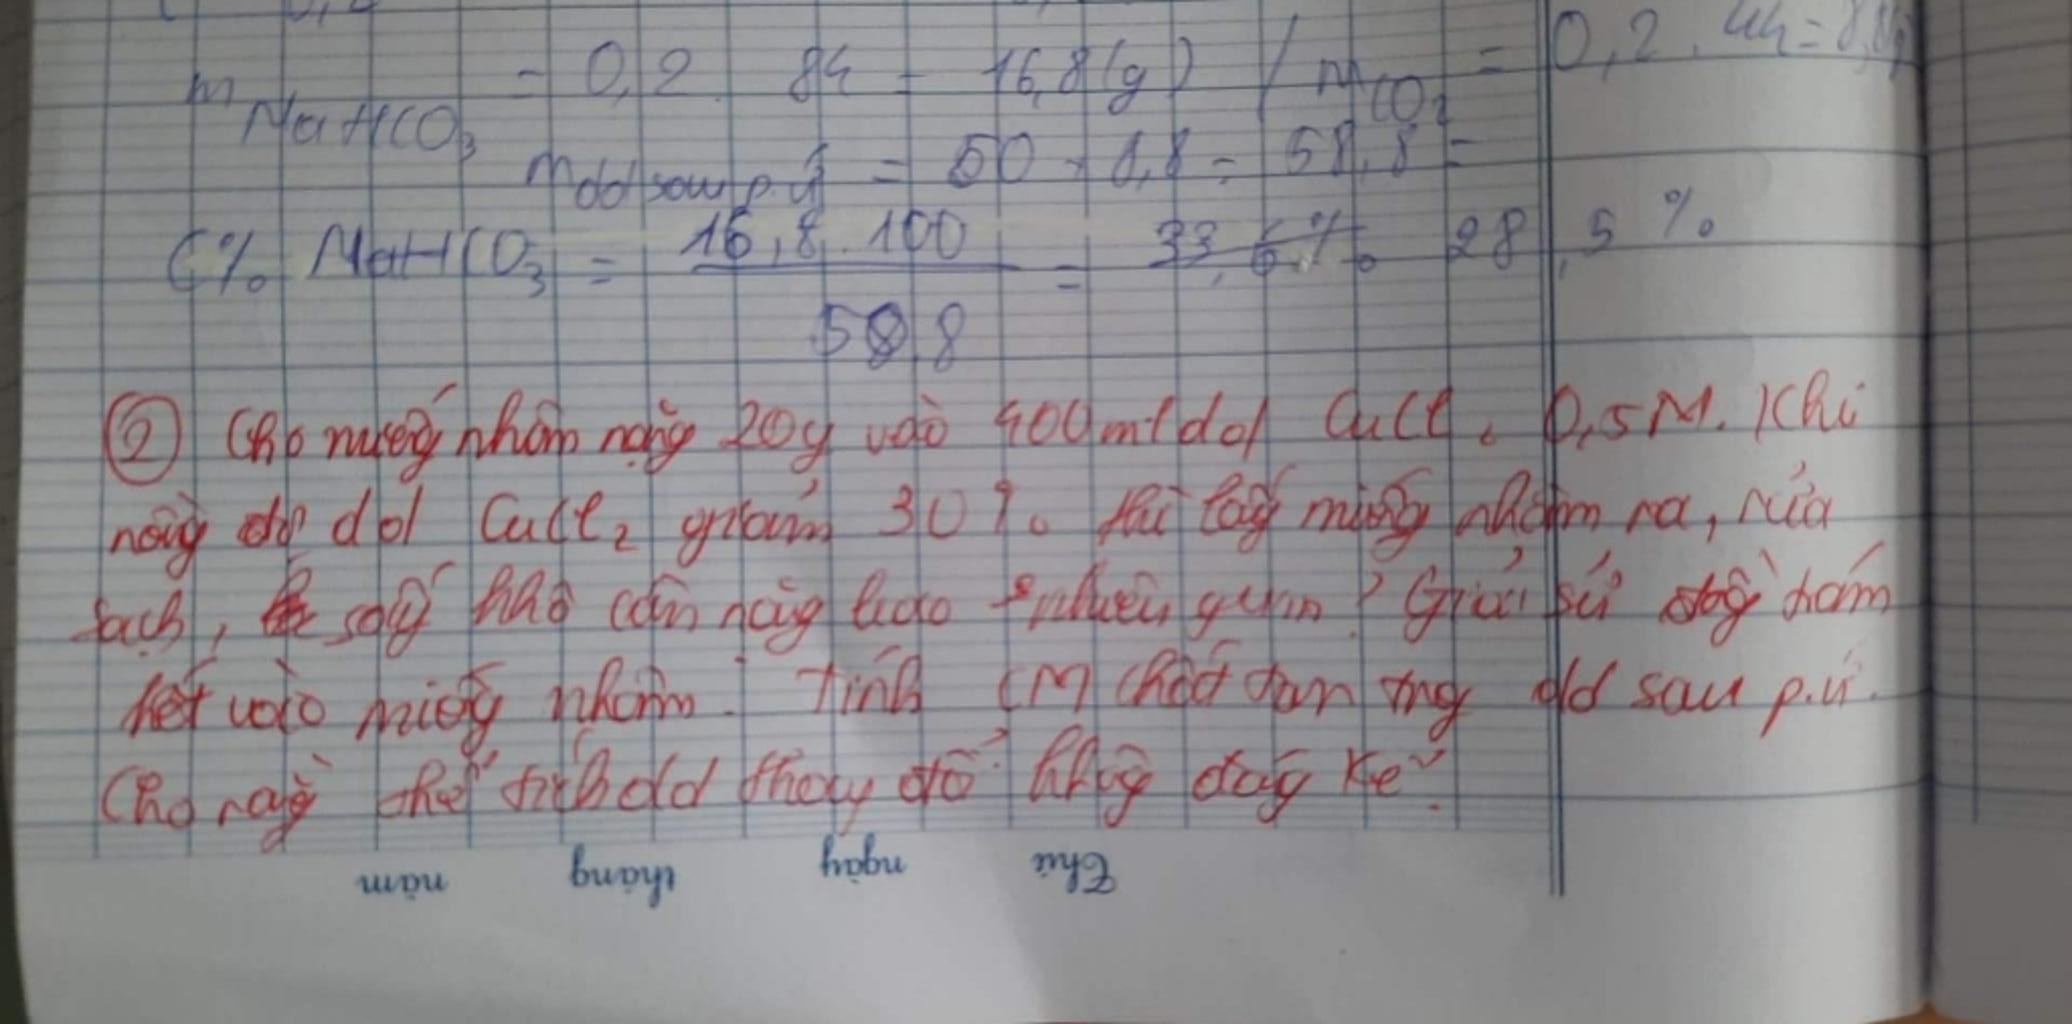 m NaHCO₃ = 0,2 . 84 = 16,8 (g) / mCO₂ = 0,2 . 44 = 8,8g
m dd sau p.ứ = 50 + 8,8 = 58,8
C% NaHCO₃ = 16,8 . 100 / 58,8 = 28,5 %
② Cho miếng nhôm nặng 20g vào 400ml dd CuCl₂ 0,5M. Khi
nồng độ dd CuCl₂ giảm 30% thì lấy miếng nhôm ra, rửa
sạch, sấy khô cân nặng bao nhiêu gam? Giả sử đồng bám
hết vào miếng nhôm. Tính CM chất tan trng dd sau p.ứ.
Cho rằng thể tích dd thay đổi không đáng kể.
Thứ ngày tháng năm